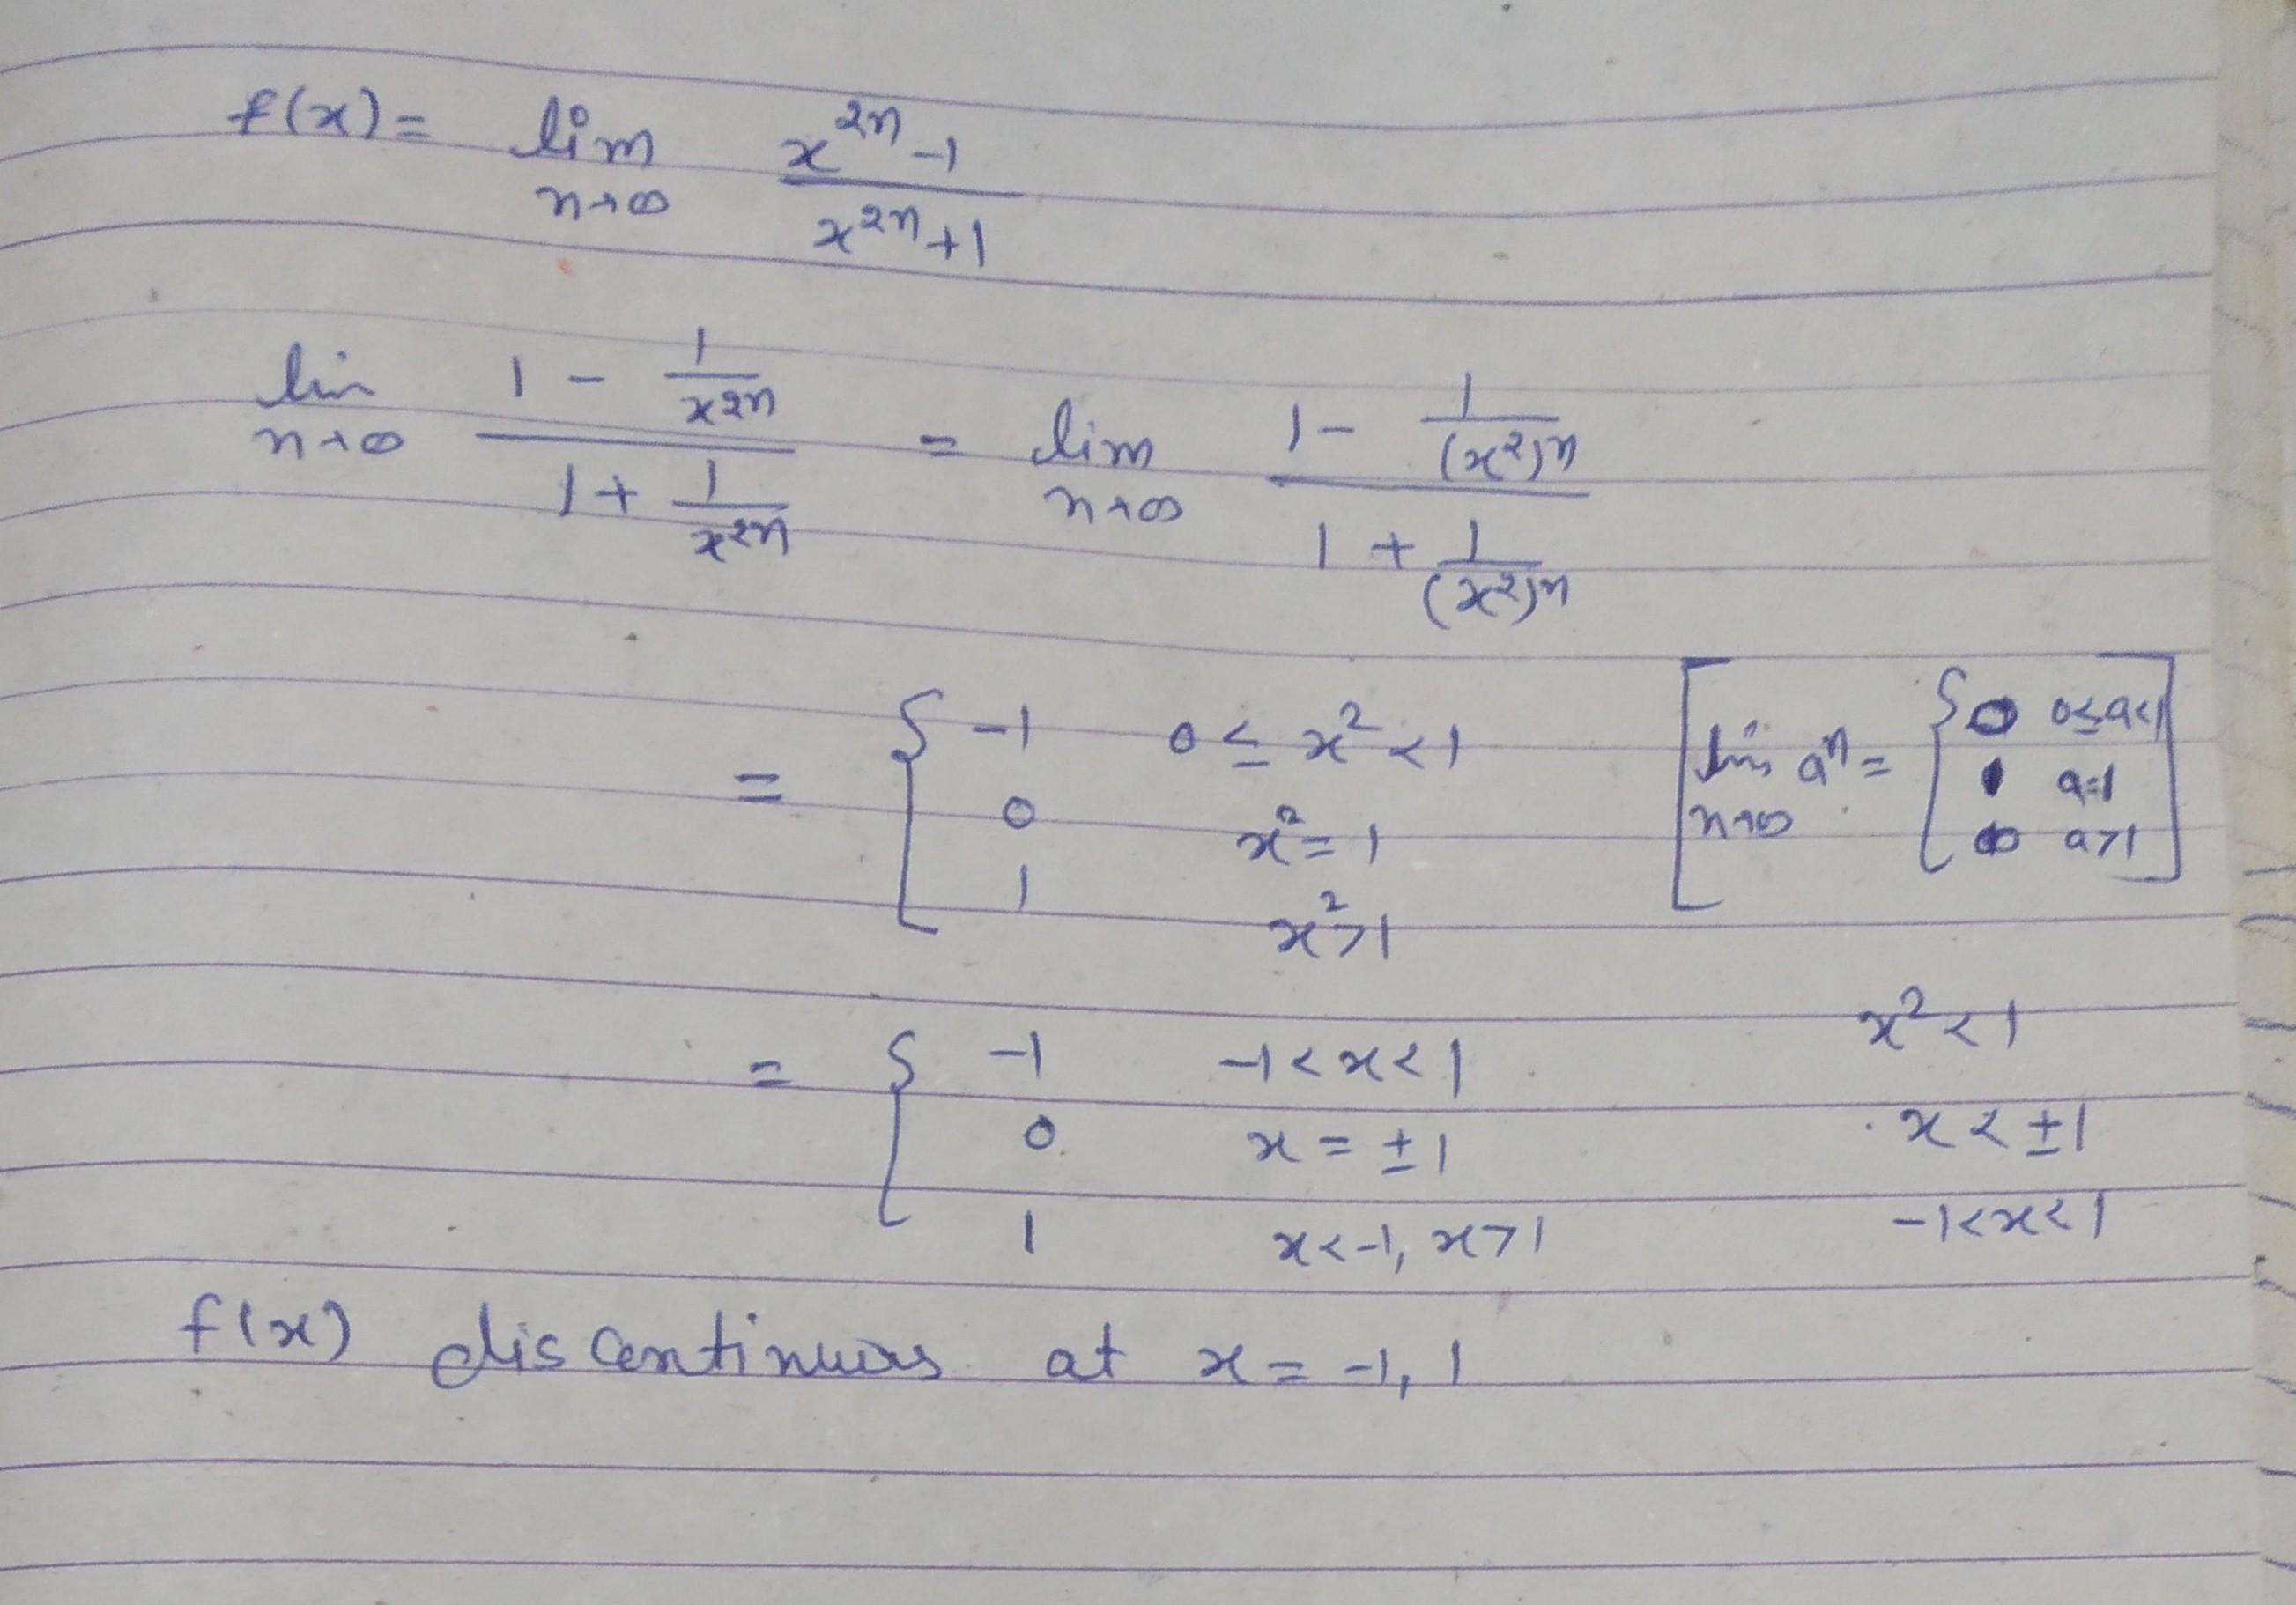 f(x) = lim n→∞ (x^{2n} - 1)/(x^{2n} + 1)
lim n→∞ (1 - 1/x^{2n})/(1 + 1/x^{2n}) = lim n→∞ (1 - 1/(x²)^n)/(1 + 1/(x²)^n)
= { -1 0 ≤ x² < 1
0 x² = 1
1 x² > 1
[ lim n→∞ a^n = { 0 0≤a<1
1 a=1
∞ a>1 ]
= { -1 -1<x<1
0. x = ±1
1 x<-1, x>1
x² < 1
x < ±1
-1<x<1
f(x) discontinuous at x = -1, 1